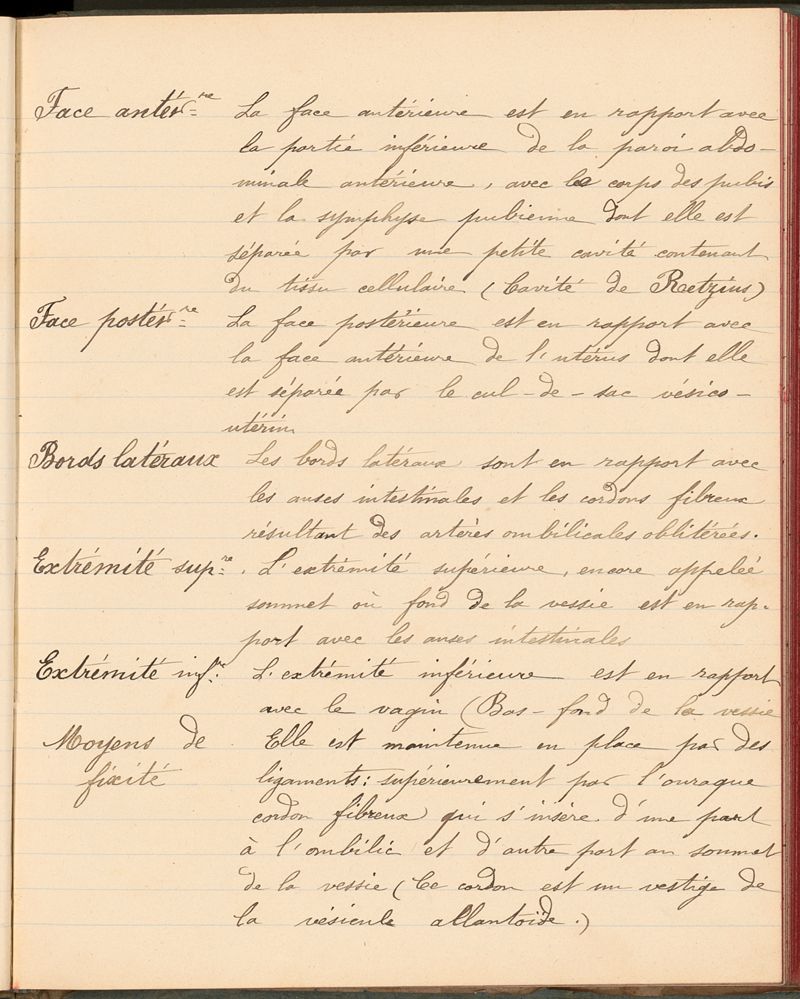 Face antérre La face antérieure est en rapport avec
la partie inférieure de la paroi abdo-
minale antérieure, avec le corps des pubis
et la symphyse pubienne dont elle est
séparée par une petite cavité contenant
du tissu cellulaire (Cavité de Retzius)
Face postérre La face postérieure est en rapport avec
la face antérieure de l'utérus dont elle
est séparée par le cul-de-sac vésico-
utérin
Bords latéraux Les bords latéraux sont en rapport avec
les anses intestinales et les cordons fibreux
résultant des artères ombilicales oblitérées.
Extrémité supre. L'extrémité supérieure, encore appelée
sommet où fond de la vessie est en rap-
port avec les anses intestinales
Extrémité infre. L'extrémité inférieure est en rapport
avec le vagin (Bas-fond de la vessie
Moyens de Elle est maintenue en place par des
fixité ligaments: supérieurement par l'ouraque
cordon fibreux qui s'insère d'une part
à l'ombilic et d'autre part au sommet
de la vessie (Ce cordon est un vestige de
la vésicule allantoïde.)